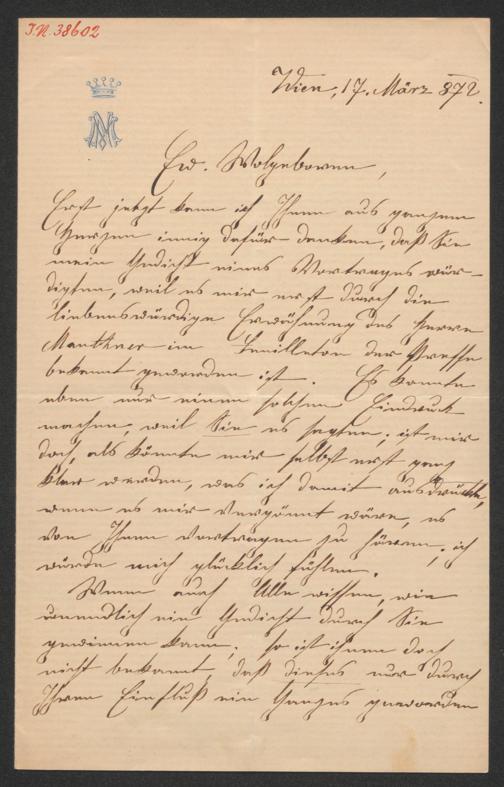 J.N. 38602
Wien, 17. März 872.
Ew. Wolgeboren,
Erst jetzt kann ich Ihnen aus ganzem
Herzen innig dafür danken, daß Sie
mein Gedicht eines Vortrages wür-
digten, weil es mir erst durch die
liebenswürdige Erwähnung des Herrn
Mauthner im Feuilleton der Presse
bekannt geworden ist. Es konnte
eben nur einen solchen Eindruck
machen, weil Sie es sagten; ist mir
doch, als könnte mir selbst erst ganz
klar werden, was ich damit ausdrückte,
wenn es mir vergönnt wäre, es
von Ihnen vortragen zu hören; ich
würde mich glücklich fühlen.
Wenn auch Alle wissen, wie
unendlich ein Gedicht durch Sie
gewinnen kann; so ist ihnen doch
nicht bekannt, daß dieses nur durch
Ihren Einfluß ein Ganzes geworden